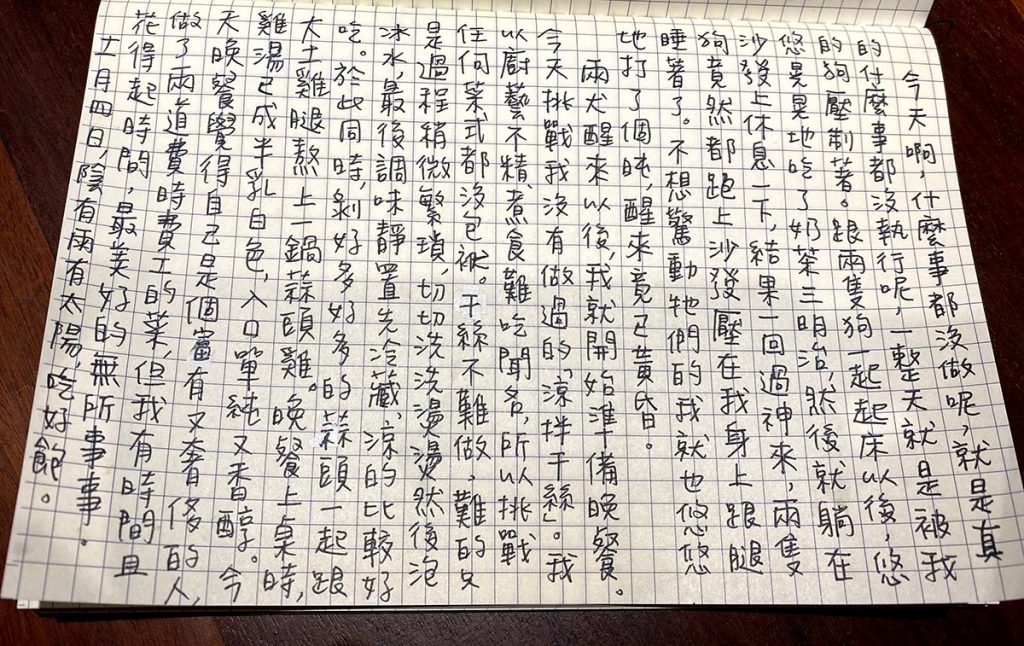 今天啊，什麼事都沒做呢，就是真
的什麼事都沒執行呢，一整天就是被我
的狗壓制著。跟兩隻狗一起起床以後，悠
悠晃晃地吃了奶茶三明治，然後就躺在
沙發上休息一下，結果一回過神來，兩隻
狗竟然都跑上沙發壓在我身上跟腿
睡著了。不想驚動牠們的我就也悠悠
地打了個盹，醒來竟已黃昏。
兩犬醒來以後，我就開始準備晚餐。
今天挑戰我沒有做過的「涼拌干絲」。我
以廚藝不精、煮食難吃聞名，所以挑戰
任何菜式都沒包袱。干絲不難做，難的
是過程稍微繁瑣，切切洗洗燙燙然後泡
冰水，最後調味靜置先冷藏，涼的比較好
吃。於此同時，剝好多好多的蒜頭一起跟
大土雞腿熬上一鍋蒜頭雞。晚餐上桌時，
雞湯已成半乳白色，入口單純又香醇。今
天晚餐覺得自己是個富有又奢侈的人，
做了兩道費時費工的菜，但我有時間且
花得起時間，最美好的無所事事。
十一月四日，陰有雨有太陽，吃好飽。